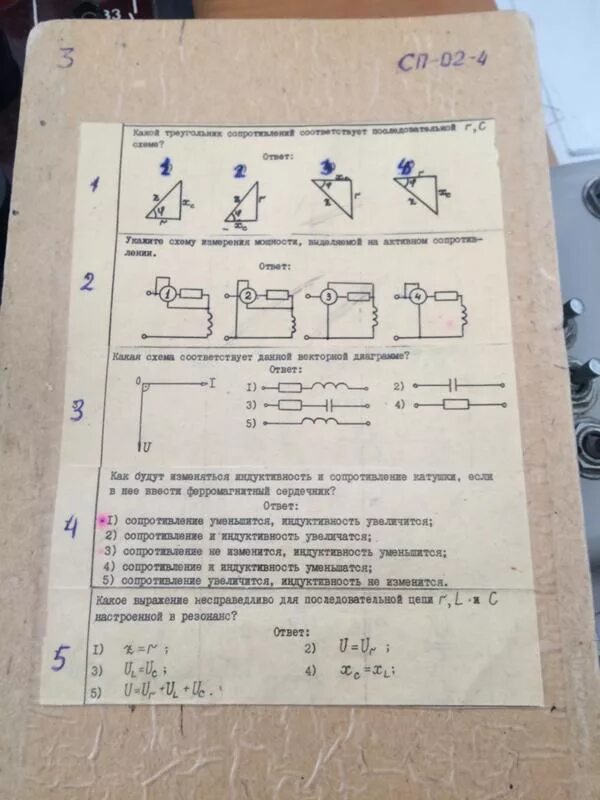 33
3
СП-02-4
1
Какой треугольник сопротивлений соответствует последовательной r, C
схеме?
Ответ:
1 2 3 4
z φ r xc
z φ xc r
xc φ z r
r φ z xc
2
Укажите схему измерения мощности, выделяемой на активном сопротив-
лении.
Ответ:
1 2 3 4
3
Какая схема соответствует данной векторной диаграмме?
Ответ:
0 I
U
I) 2)
3) 4)
5)
4
Как будут изменяться индуктивность и сопротивление катушки, если
в нее ввести ферромагнитный сердечник?
Ответ:
I) сопротивление уменьшится, индуктивность увеличится;
2) сопротивление и индуктивность увеличатся;
3) сопротивление не изменится, индуктивность уменьшится;
4) сопротивление и индуктивность уменьшатся;
5) сопротивление увеличится, индуктивность не изменится.
5
Какое выражение несправедливо для последовательной цепи r, L и C
настроенной в резонанс?
Ответ:
I) z = r ; 2) U = Ur ;
3) UL = UC ; 4) xc = xL ;
5) U = Ur + UL + UC .